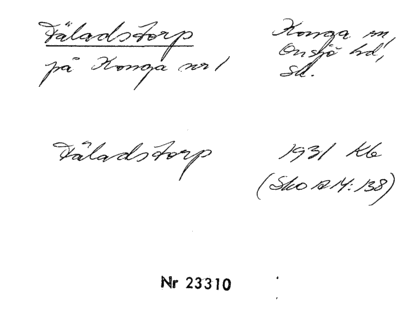 Täladstorp
på Konga nr 1
Konga sn,
Onsjö hd,
Sk.
Täladstorp
1931 Kb
(Sko A 14:138)
Nr 23310